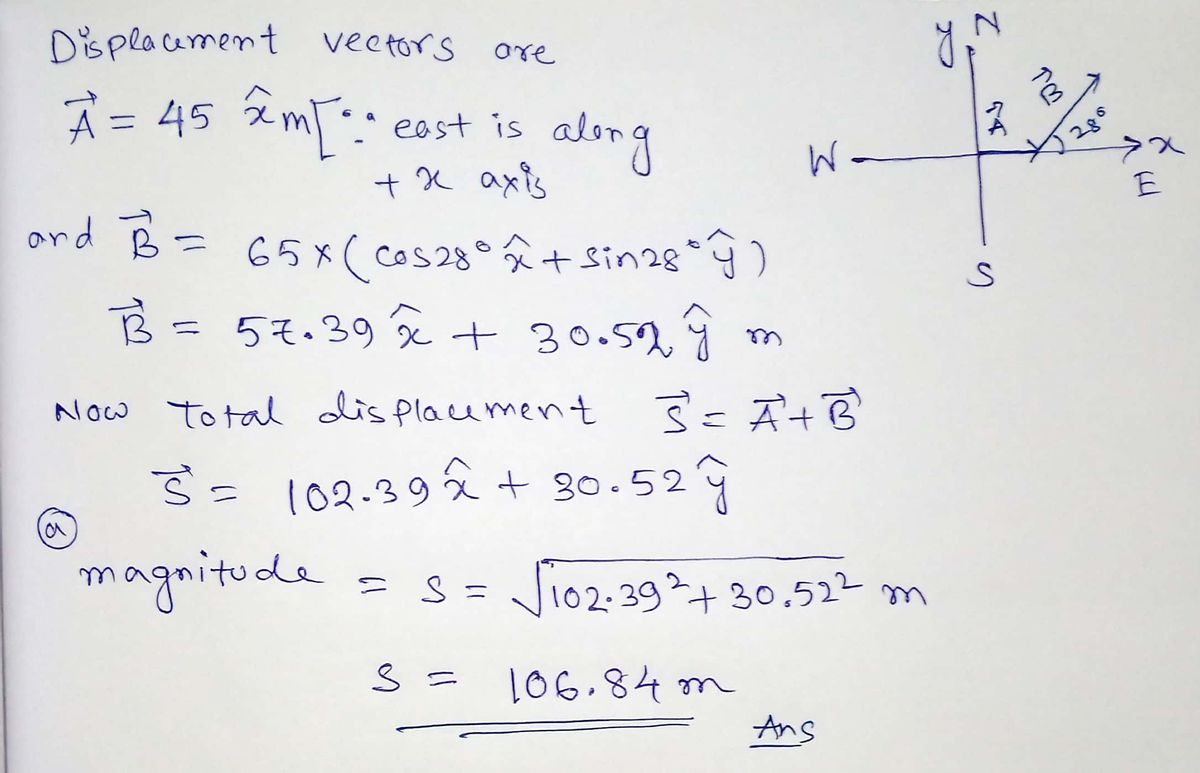 Displacement vectors are
A⃗ = 45 x̂ m [∵ east is along
+ x axis
and B⃗ = 65 × (cos28° x̂ + sin28° ŷ)
B⃗ = 57.39 x̂ + 30.52 ŷ m
Now total displacement S⃗ = A⃗ + B⃗
S⃗ = 102.39 x̂ + 30.52 ŷ
ⓐ
magnitude = s = √102.39² + 30.52² m
s = 106.84 m
Ans
y N
B⃗
A⃗ 28°
W x
E
S